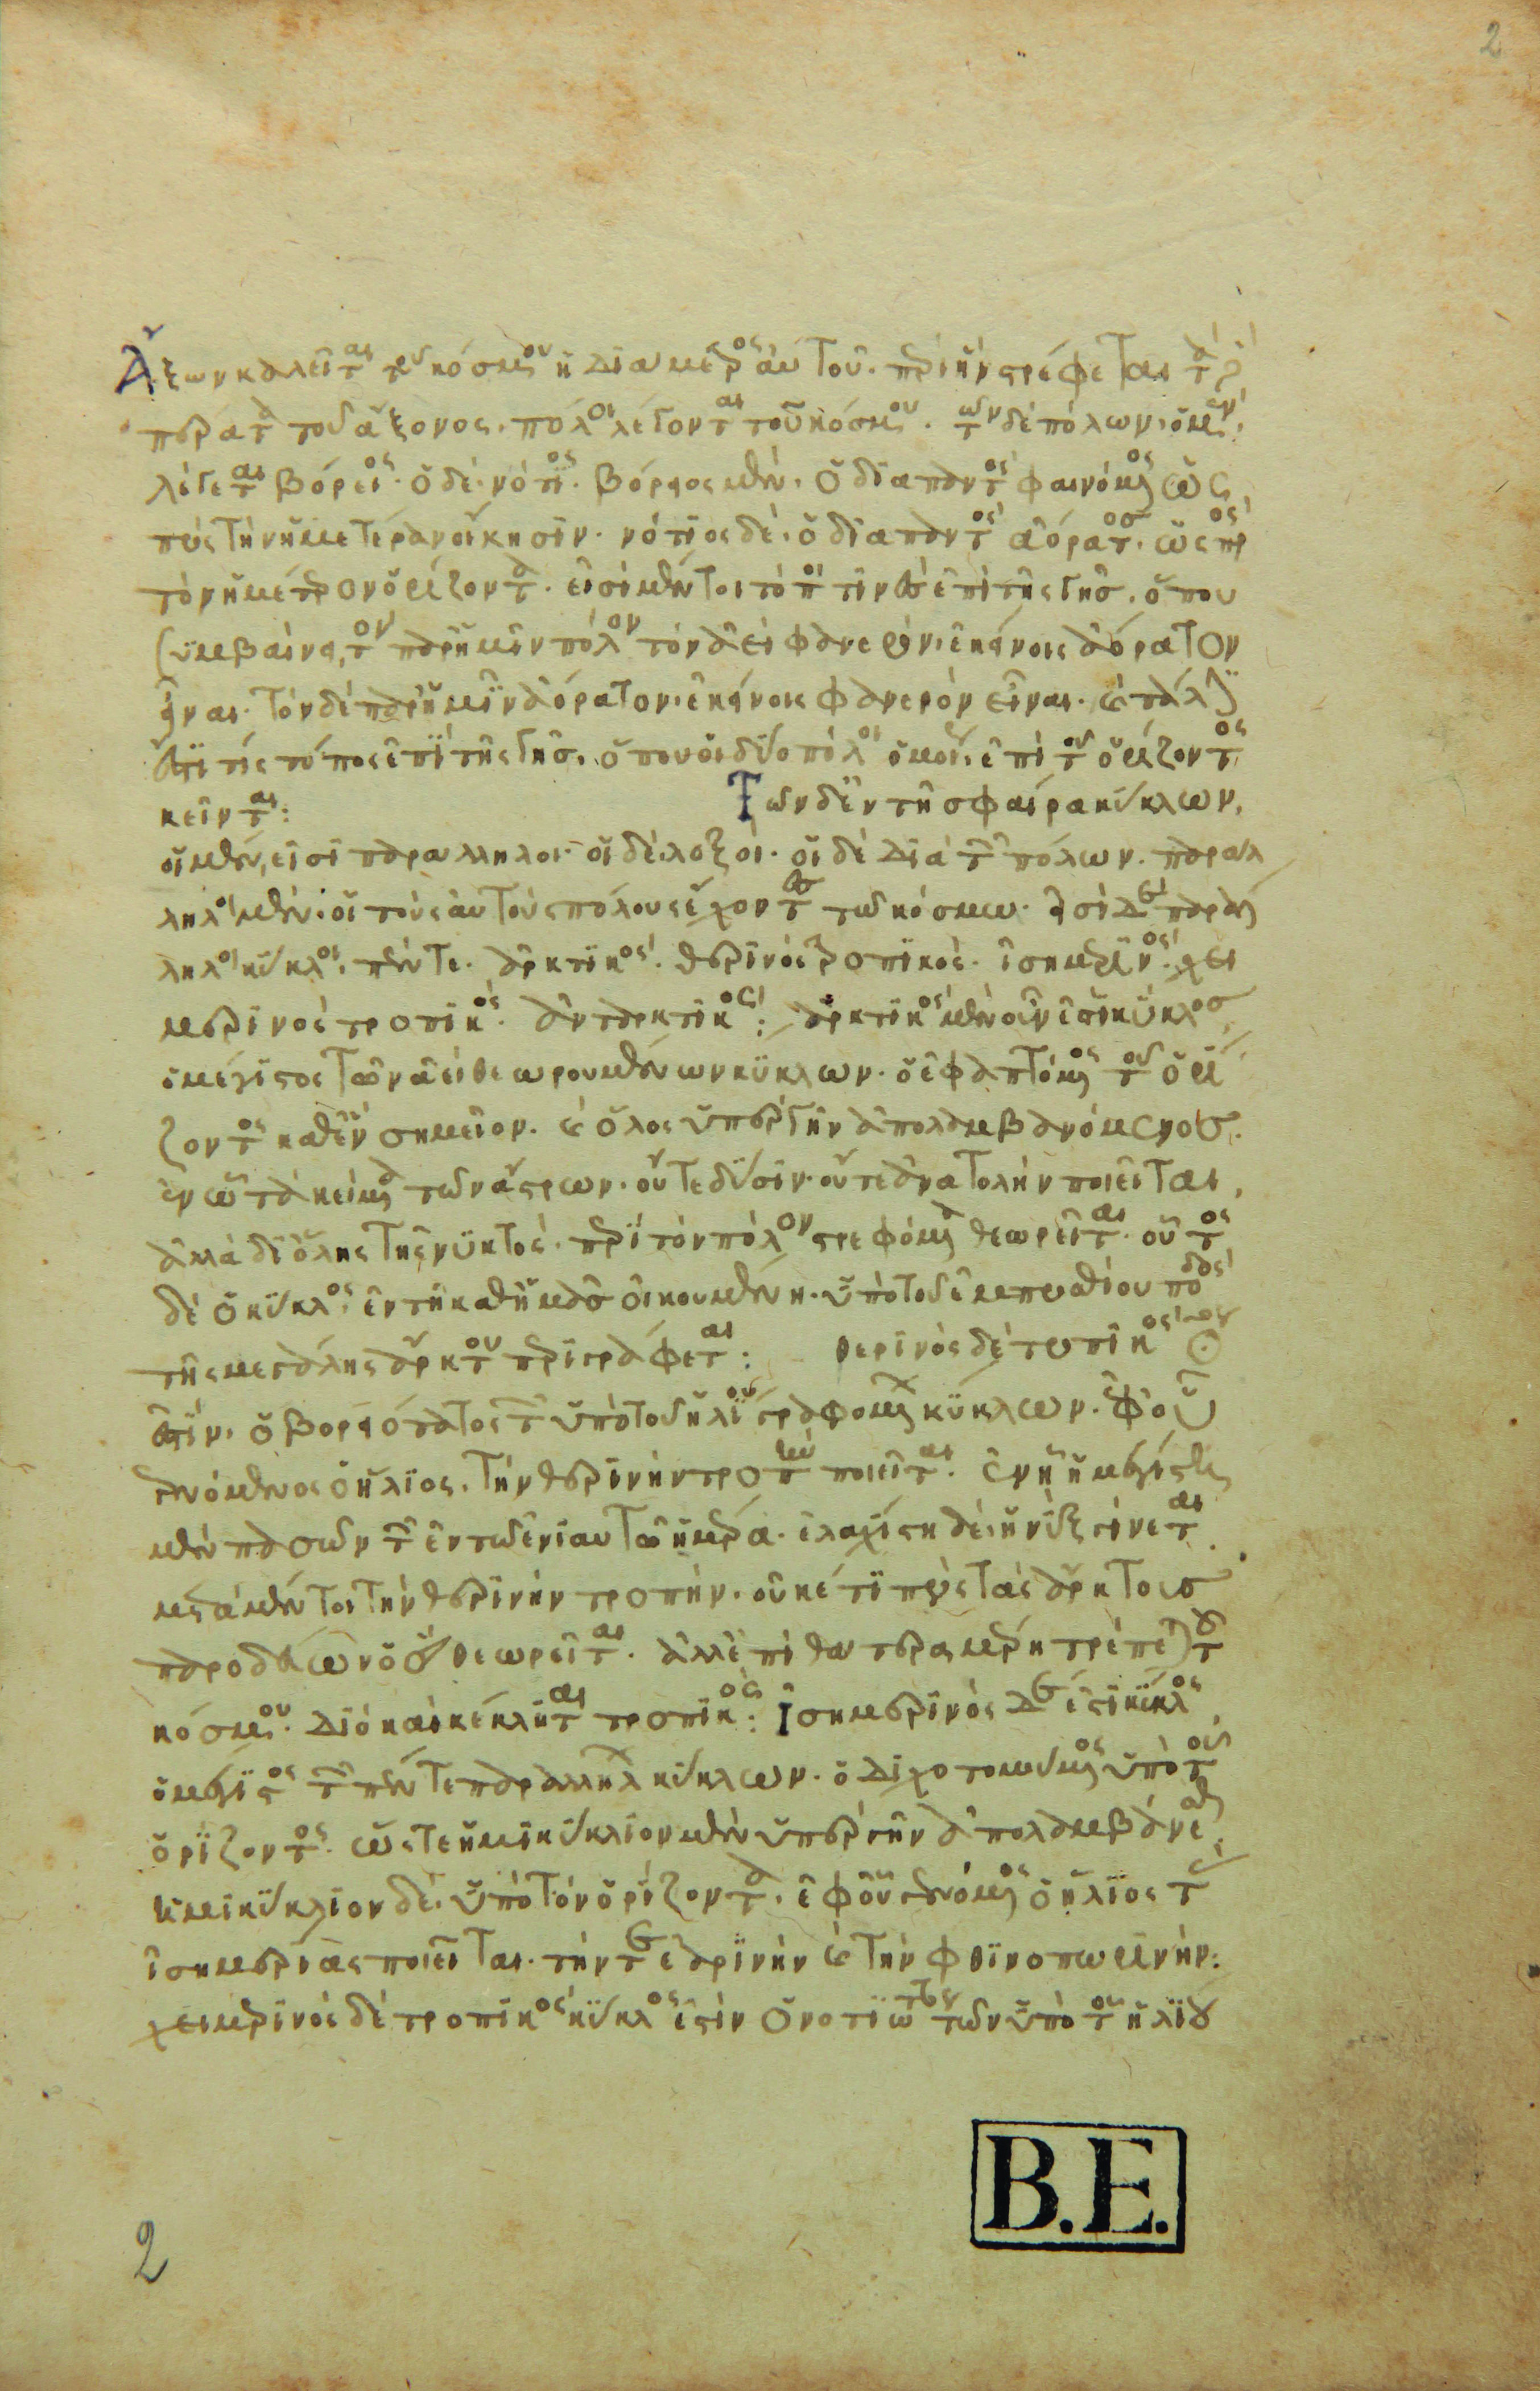 2
Ἄξων καλεῖται τοῦ κόσμου ἡ διάμετρος αὐτοῦ. περὶ ἣν στρέφεται. τὰ δὲ
πέρατα τοῦ ἄξονος. πόλοι λέγονται τοῦ κόσμου. τῶν δὲ πόλων. ὁ μὲν.
λέγεται βόρειος. ὁ δὲ. νότιος. βόρειος μὲν. ὁ διαπαντὸς φαινόμενος ὡς
πρὸς τὴν ἡμετέραν οἴκησιν. νότιος δὲ. ὁ διαπαντὸς ἀόρατος. ὡς πρὸς
τὸν ἡμέτερον ὁρίζοντα. εἰσὶ μέντοι τόποι τινὲς ἐπὶ τῆς γῆς. ὅπου
συμβαίνει, τὸν παρ ἡμῖν πόλον τὸν ἀεὶ φανερὸν. ἐκείνοις ἀόρατον
εἶναι. τὸν δὲ παρ ἡμῖν ἀόρατον. ἐκείνοις φανερὸν εἶναι. καὶ πάλιν
ἔστι τίς τόπος ἐπὶ τῆς γῆς. ὅπου οἱ δύο πόλοι ὁμοῦ. ἐπὶ τοῦ ὁρίζοντος
κεῖνται: Τῶν δὲ ἐν τῇ σφαίρα κύκλων.
οἱ μὲν, εἰσὶ παράλληλοι. οἱ δὲ. λοξοί. οἱ δὲ διὰ τῶν πόλων. παράλ
ληλοι μὲν. οἱ τοὺς αὐτοὺς πόλους ἔχοντες τῶ κόσμω. εἰσὶ δὲ παράλ
ληλοι κύκλοι. πέντε. ἀρκτικός. θερινὸς τροπικός. ἰσημερινός. χει
μερινὸς τροπικός. ἀνταρκτικός: ἀρκτικὸς μὲν οὖν ἐστι κύκλος
ὁ μέγιστος τῶν ἀεὶ θεωρουμένων κύκλων. ὁ ἐφαπτόμενος τοῦ ὁρί
ζοντος καθ ἓν σημεῖον. καὶ ὅλος ὑπὲρ γῆν ἀπολαμβανόμενος.
ἐν ὧ τὰ κείμενα τῶν ἄστρων. οὔτε δύσιν. οὔτε ἀνατολὴν ποιεῖται.
ἀλλὰ δι ὅλης τῆς νυκτός. περὶ τὸν πόλον στρεφόμενα θεωρεῖται. οὗτος
δὲ ὁ κύκλος. ἐν τῇ καθ ἡμᾶς οἰκουμένη. ὑπὸ τοῦ ἐμπροσθίου ποδὸς
τῆς μεγάλης ἄρκτου περιγράφεται: θερινὸς δὲ τροπικὸς κύκλος
ἐστὶν. ὁ βορειότατος τῶν ὑπὸ τοῦ ἡλίου γραφομένων κύκλων. ἐφ οὗ
γενόμενος ὁ ἥλιος. τὴν θερινὴν τροπὴν ποιεῖται. ἐν ἧ ἡ μεγίστη
μὲν πασῶν τῶν ἐν τῶ ἐνιαυτῶ ἡμέρα. ἐλαχίστη δὲ. ἡ νὺξ γίνεται.
μετὰ μέντοι τὴν θερινὴν τροπὴν. οὐκέτι πρὸς τὰς ἄρκτους
παροδεύων ὁ ἥλιος θεωρεῖται. ἀλλ ἐπὶ θάτερα μέρη τρέπεται τοῦ
κόσμου. διὸ καὶ κέκληται τροπικός: Ἰσημερινὸς δέ ἐστι κύκλος
ὁ μέγιστος τῶν πέντε παραλλήλων κύκλων. ὁ διχοτομούμενος ὑπὸ τοῦ
ὁρίζοντος. ὥστε ἡμικύκλιον μὲν ὑπὲρ γῆν ἀπολαμβάνεσθαι.
ἡμικύκλιον δὲ. ὑπὸ τὸν ὁρίζοντα. ἐφ οὗ γενόμενος ὁ ἥλιος τὰς
ἰσημερίας ποιεῖται. τήν τε ἐαρινὴν καὶ τὴν φθινοπωρινήν:
χειμερινὸς δὲ τροπικὸς κύκλος ἐστὶν ὁ νοτιώτατος τῶν ὑπὸ τοῦ ἡλίου
B.E.
2